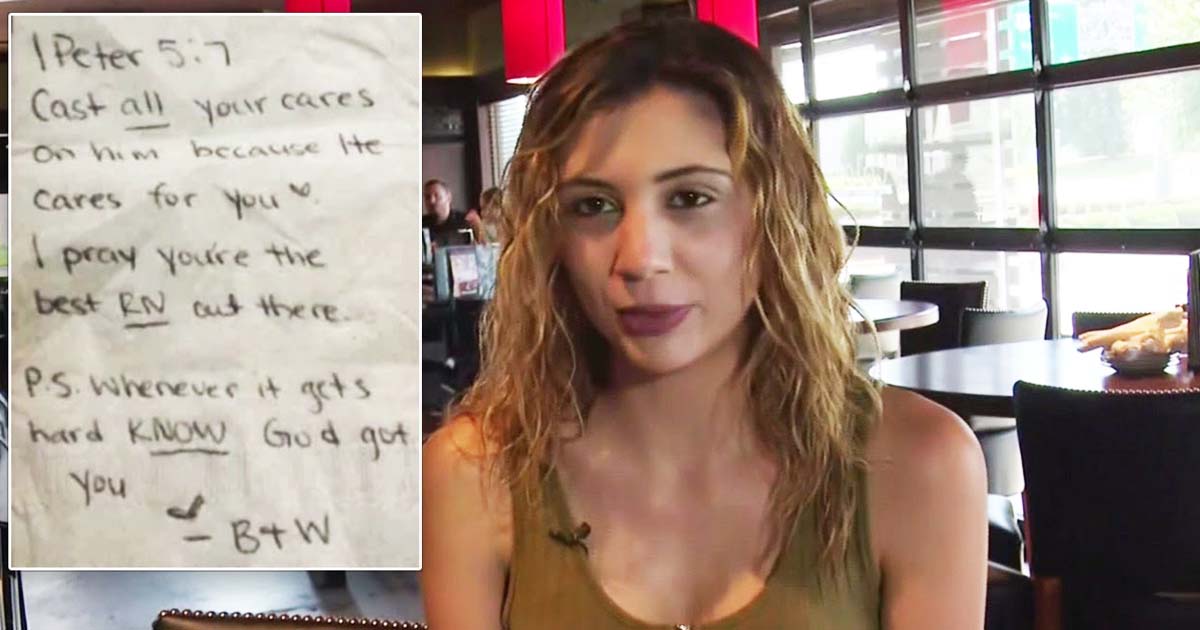 1 Peter 5:7
Cast all your cares
on him because He
cares for you
I pray you're the
best RN out there.
P.S. Whenever it gets
hard KNOW God got
you
- B+W